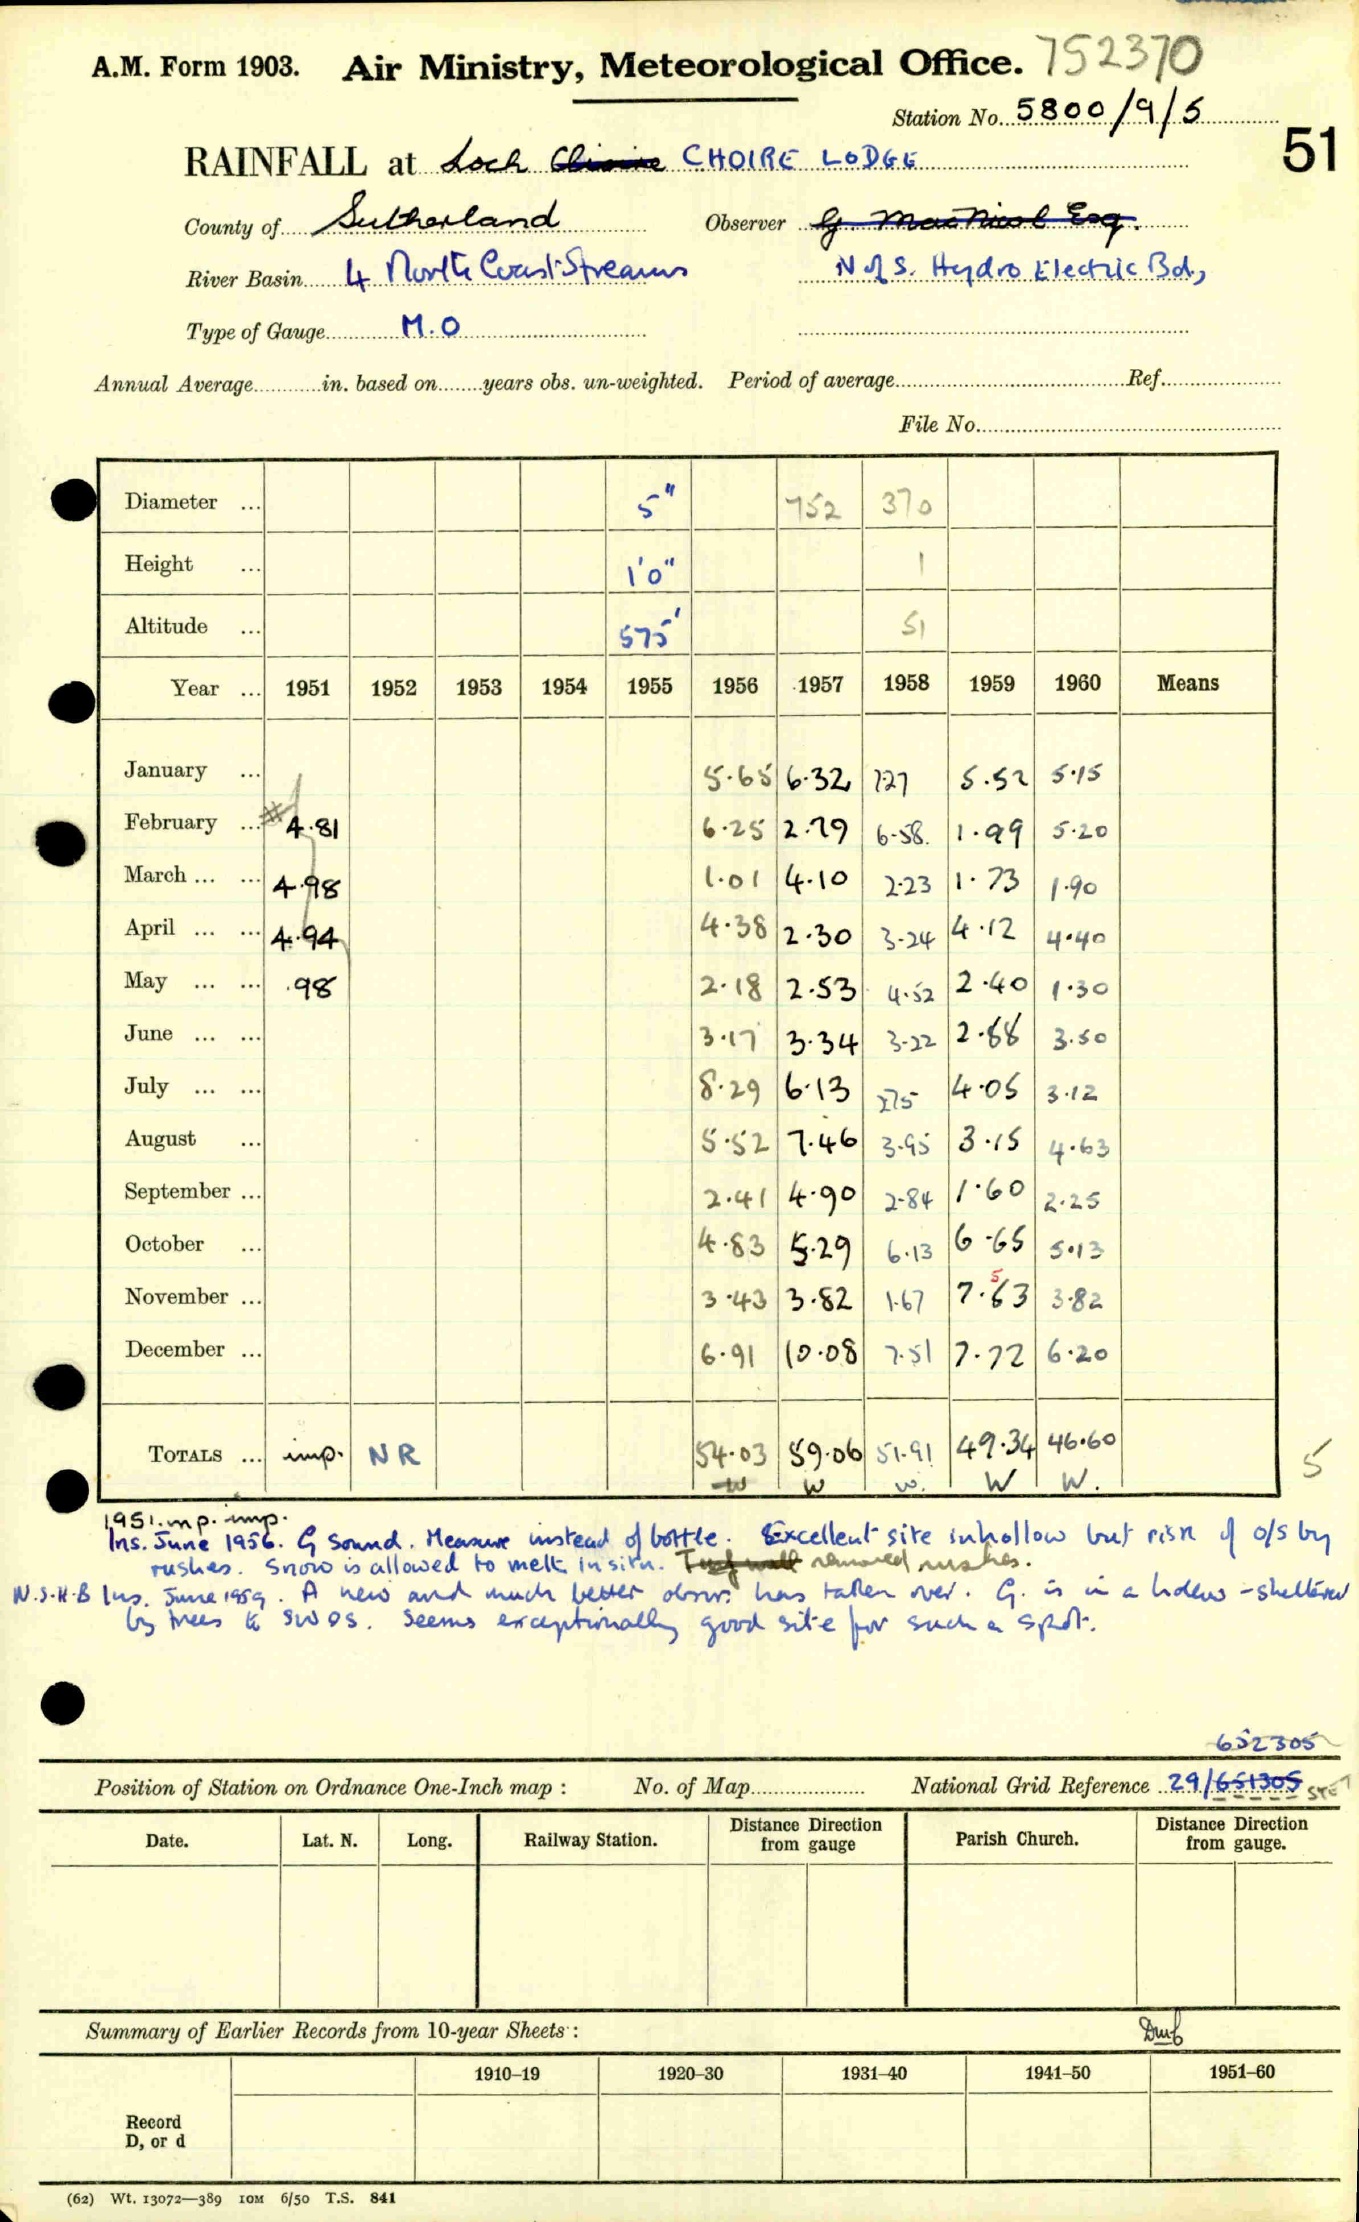 A.M. Form 1903. Air Ministry, Meteorological Office. 752370
Station No. 5800/9/5
51
RAINFALL at Loch CHOIRE LODGE
County of Sutherland Observer G MacNicol Esq.
River Basin 4 North Coast Streams N of S. Hydro Electric Bd,
Type of Gauge M.O
Annual Average in. based on years obs. un-weighted. Period of average Ref.
File No.
Diameter ... 5" 752 370
Height ... 1'0" 1
Altitude ... 575' 51
Year ... 1951 1952 1953 1954 1955 1956 1957 1958 1959 1960 Means
January ... 5.65 6.32 7.27 5.52 5.15
February ... 4.81 6.25 2.79 6.58 1.99 5.20
March ... ... 4.98 1.01 4.10 2.23 1.73 1.90
April ... ... 4.94 4.38 2.30 3.24 4.12 4.40
May ... ... .98 2.18 2.53 4.52 2.40 1.30
June ... ... 3.17 3.34 3.22 2.88 3.50
July ... ... 8.29 6.13 2.75 4.05 3.12
August ... 5.52 7.46 3.95 3.15 4.63
September ... 2.41 4.90 2.84 1.60 2.25
October ... 4.83 5.29 6.13 6.65 5.13
5
November ... 3.43 3.82 1.67 7.63 3.82
December ... 6.91 10.08 7.51 7.72 6.20
TOTALS ... imp. NR 54.03 59.06 51.91 49.34 46.60 5
W W W. W W.
1951. m.p. imp.
Ins. June 1956. G Sound. Measure instead of bottle. Excellent site in hollow but risk of o/s by
rushes. Snow is allowed to melt in situ. Turf wall removed rushes.
N.S.H.B Ins. June 1959. A new and much better obsvr. has taken over. G. is in a hollow - sheltered
by trees to SW & S. Seems exceptionally good site for such a spot.
652305
Position of Station on Ordnance One-Inch map : No. of Map National Grid Reference 29/651305 STET
Date. Lat. N. Long. Railway Station. Distance Direction from gauge Parish Church. Distance Direction from gauge.
Summary of Earlier Records from 10-year Sheets :
1910–19 1920–30 1931–40 1941–50 1951–60
Record
D, or d
(62) Wt. 13072—389 10M 6/50 T.S. 841